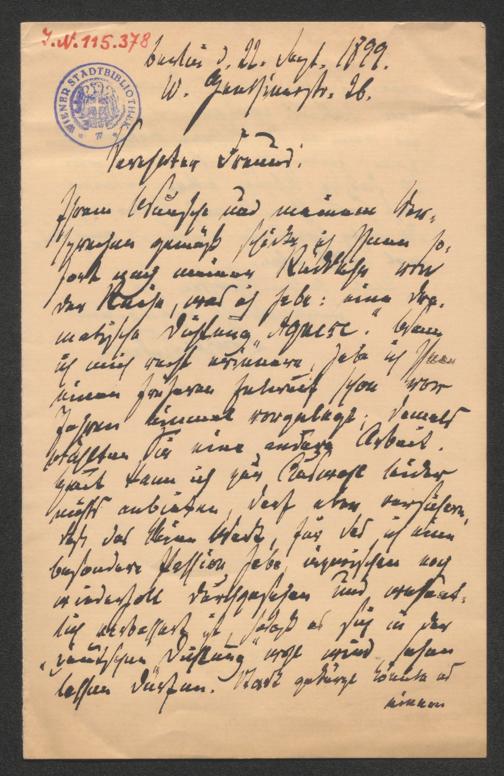 J.N. 115.378
WIENER STADTBIBLIOTHEK
Berlin d. 22. Sept. 1899.
W. Genthinerstr. 26.
Verehrter Freund!
Ihrem Wunsche und meinem Ver-
sprechen gemäß schicke ich Ihnen so-
fort nach meiner Rückkehr von
der Reise, was ich habe: eine dra-
matische Dichtung „Agnese". Wenn
ich mich recht erinnere, habe ich Ihnen
einen früheren Entwurf schon vor
Jahren einmal vorgelegt; damals
wählten Sie eine andere Arbeit.
Heut kann ich zur Auswahl leider
nichts anbieten, darf aber versichern,
daß das kleine Werk, für das ich eine
besondere Passion habe, inzwischen noch
wiederholt durchgesehen und wesent-
lich verbessert ist, sodaß es sich in der
„Deutschen Dichtung" wohl wird sehen
lassen dürfen. Stark gekürzt könnte es